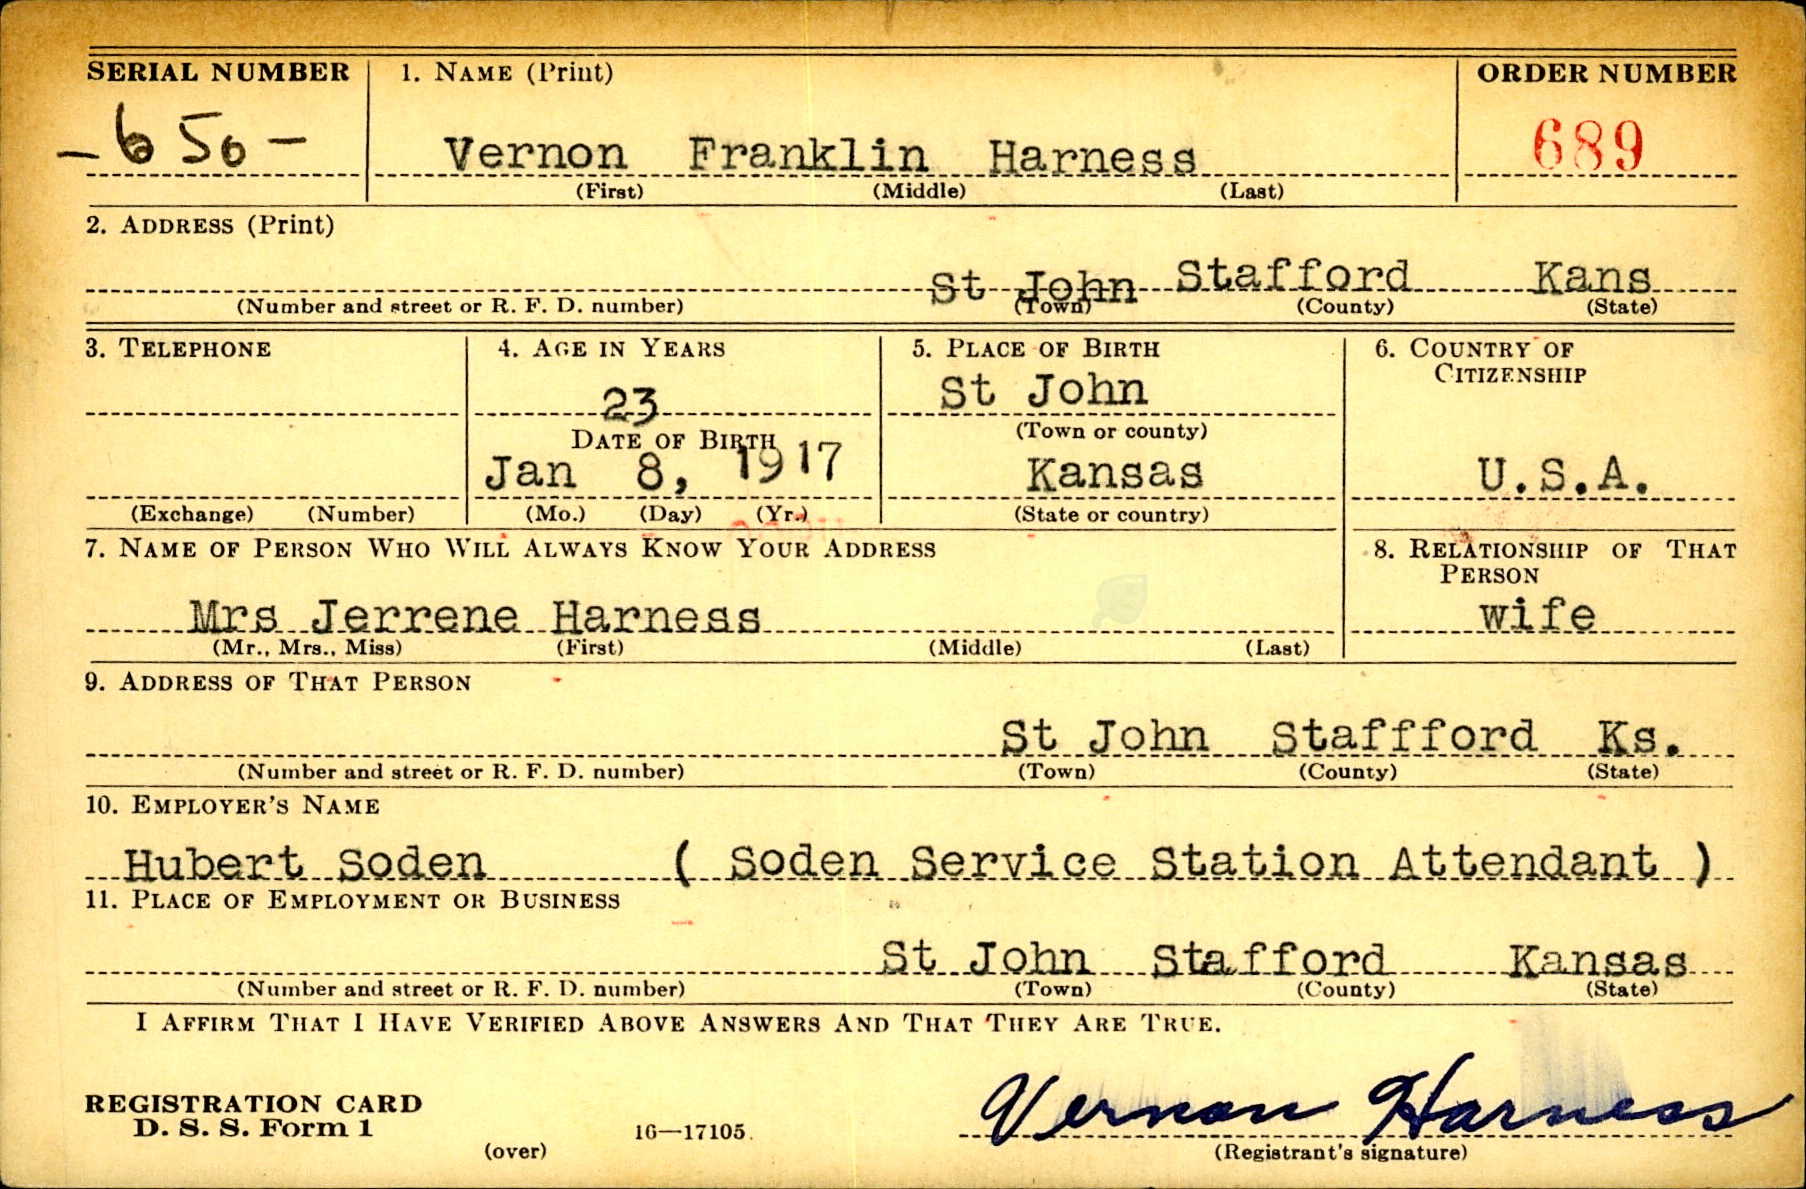 SERIAL NUMBER 1. NAME (Print) ORDER NUMBER
-650- Vernon Franklin Harness 689
(First) (Middle) (Last)
2. ADDRESS (Print)
St John Stafford Kans
(Number and street or R. F. D. number) (Town) (County) (State)
3. TELEPHONE 4. AGE IN YEARS 5. PLACE OF BIRTH 6. COUNTRY OF
CITIZENSHIP
23 St John
DATE OF BIRTH (Town or county)
Jan 8, 1917 Kansas U.S.A.
(Exchange) (Number) (Mo.) (Day) (Yr.) (State or country)
7. NAME OF PERSON WHO WILL ALWAYS KNOW YOUR ADDRESS 8. RELATIONSHIP OF THAT
PERSON
Mrs Jerrene Harness wife
(Mr., Mrs., Miss) (First) (Middle) (Last)
9. ADDRESS OF THAT PERSON
St John Staffford Ks.
(Number and street or R. F. D. number) (Town) (County) (State)
10. EMPLOYER'S NAME
Hubert Soden ( Soden Service Station Attendant )
11. PLACE OF EMPLOYMENT OR BUSINESS
St John Stafford Kansas
(Number and street or R. F. D. number) (Town) (County) (State)
I AFFIRM THAT I HAVE VERIFIED ABOVE ANSWERS AND THAT THEY ARE TRUE.
REGISTRATION CARD
D. S. S. Form 1 16—17105 Vernon Harness
(over) (Registrant's signature)